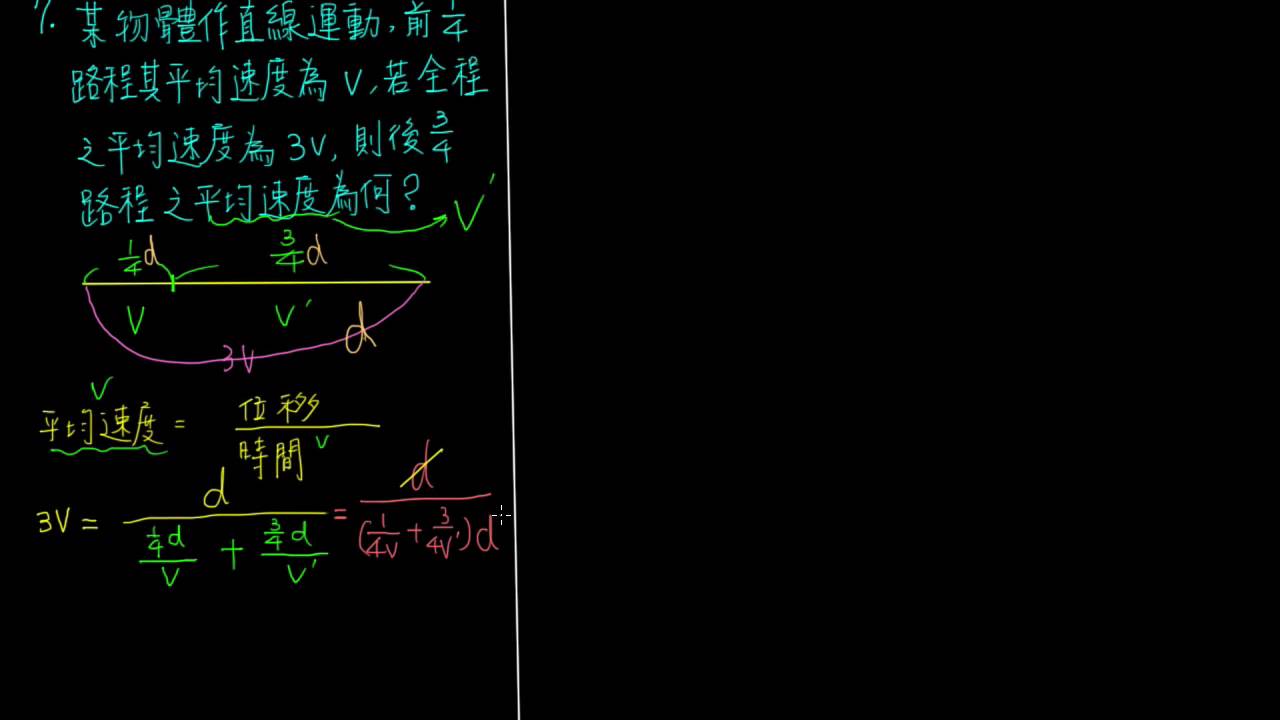 7. 某物體作直線運動,前1/4
路程其平均速度為V,若全程
之平均速度為3V,則後3/4
路程之平均速度為何?
V'
1/4d 3/4d
V V' d
3V
V
平均速度 = 位移/時間 V
3V = d/(1/4d/V + 3/4d/V') = d/((1/4V + 3/4V')d)